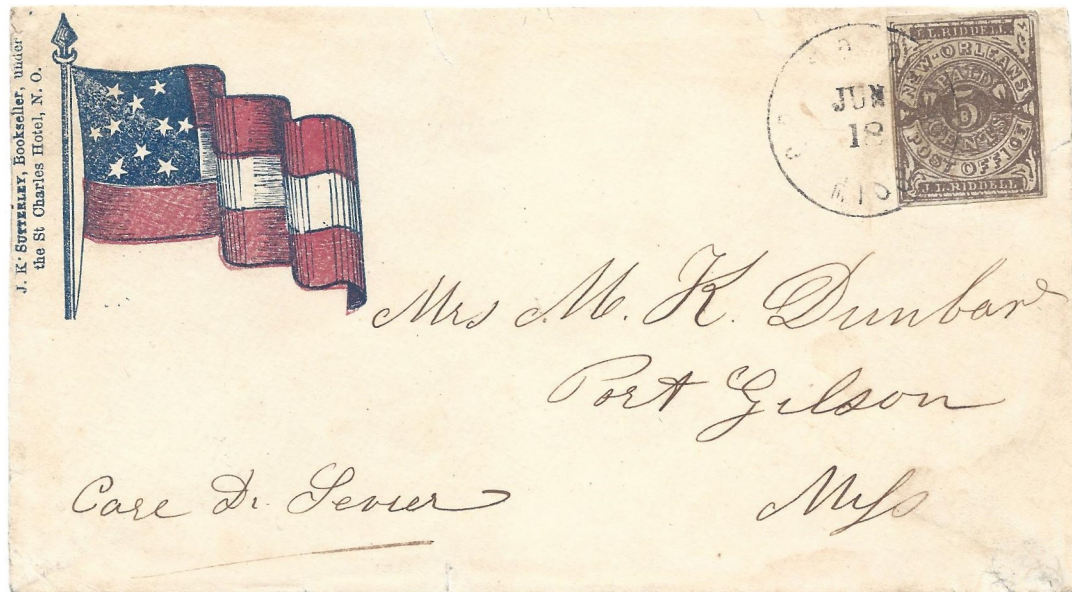 J. K. SUTTERLEY, Bookseller, under
the St Charles Hotel, N. O.
JUN
18
J. L. RIDDELL
NEW-ORLEANS
PAID
5
CENTS
POST OFFICE
J. L. RIDDELL
Mrs M. K. Dunbar
Port Gilson
Miss
Care Dr. Sevier